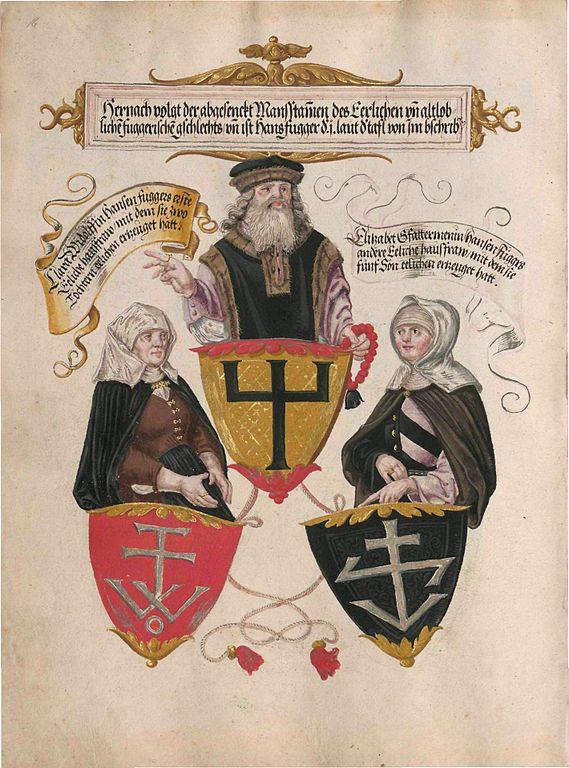 Hernach volgt der abgesenckt Mansstam̄en des Eerlichen vn̄ altlob
lichē fuggerischē gschlechts vn̄ ist Hans fugger
Clara Widolffin Hansen fuggers erste
Eeliche hausfraw mit dem sie zwo
Töchtern eelichen erzeuget hatt.
Elizabet Gfattermenin hansen fuggers
andere Eeliche hausfraw mit dem sie
fünf Sön eelichen erzeuget hatt.